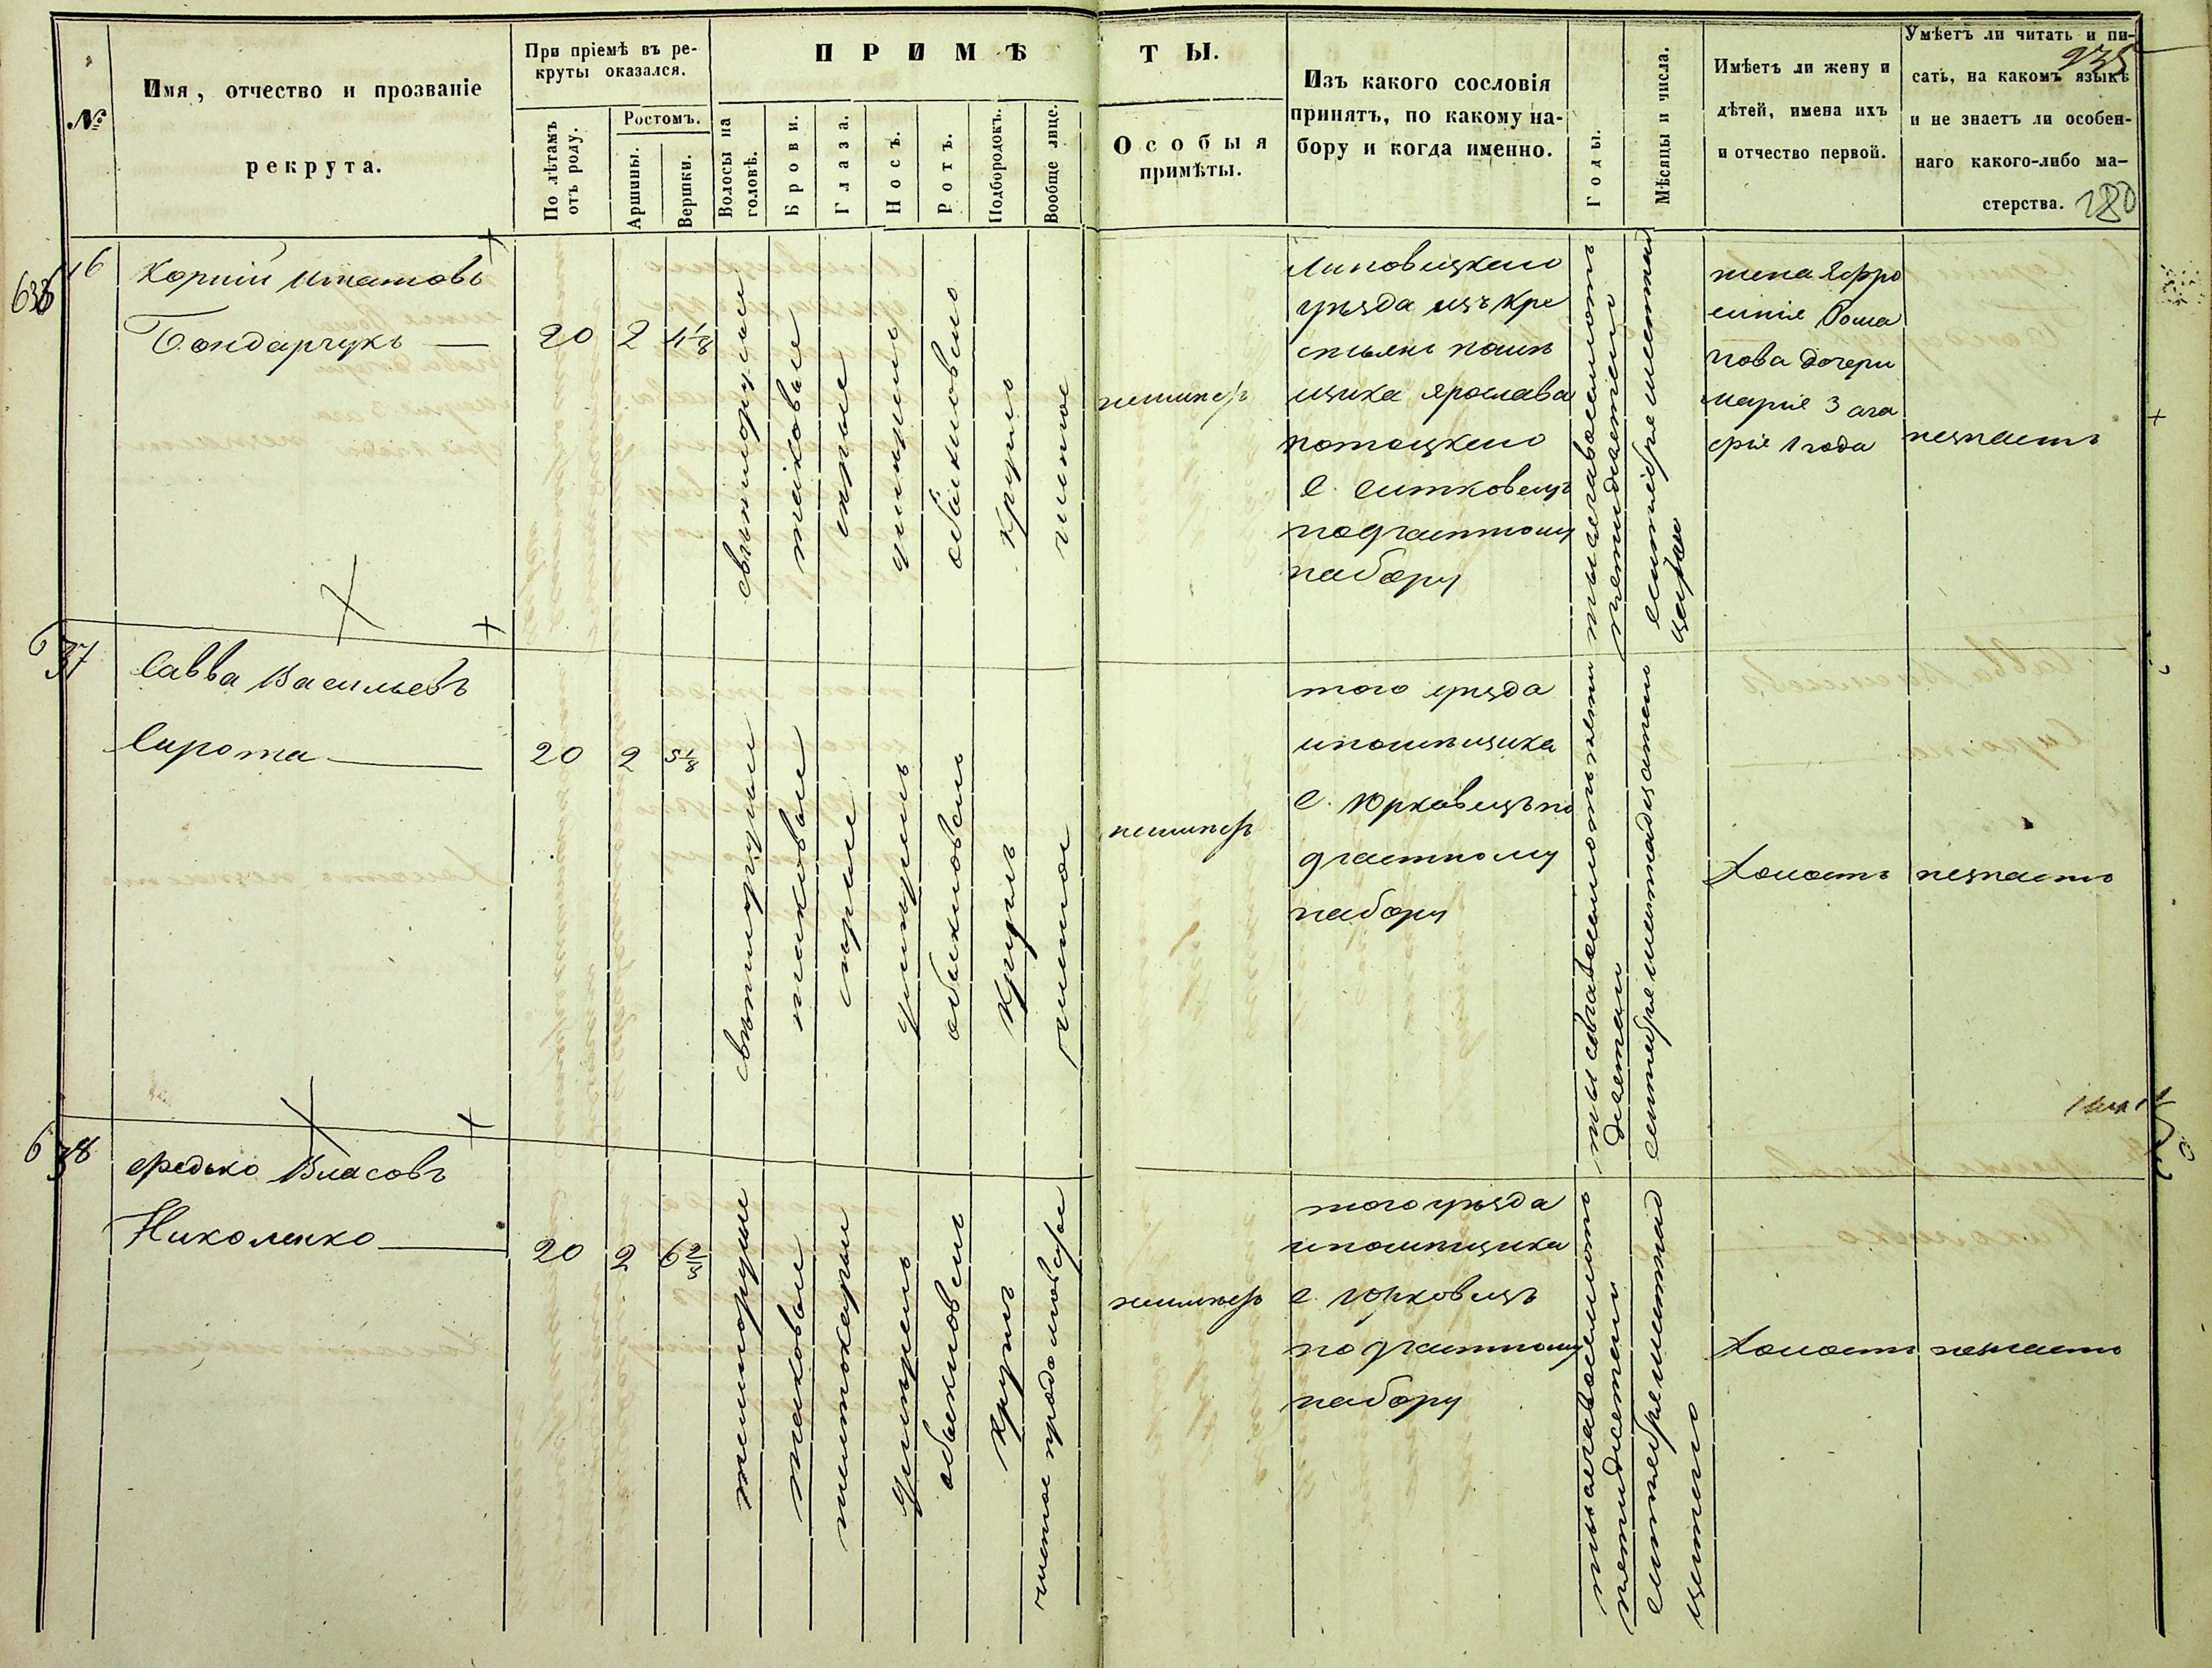 235
180
№
Имя, отчество и прозваніе
рекрута.
При пріемѣ въ ре-
круты оказался.
По лѣтамъ
отъ роду.
Ростомъ.
Аршины.
Вершки.
ПРИМѢ
ТЫ.
Волосы на
головѣ.
Брови.
Глаза.
Носъ.
Ротъ.
Подбородокъ.
Вообще лице.
Особыя
примѣты.
Изъ какого сословія
принятъ, по какому на-
бору и когда именно.
Годы.
Мѣсяцы и числа.
Имѣетъ ли жену и
дѣтей, имена ихъ
и отчество первой.
Умѣетъ ли читать и пи-
сать, на какомъ языкѣ
и не знаетъ ли особен-
наго какого-либо ма-
стерства.
Корній Игнатовъ
Бондарчукъ
20
2
4 1/8
свѣтлорусые
таковые
сѣрые
умѣренъ
обыкновенъ
круглъ
чистое
неимеетъ
Липовецкаго
уѣзда изъ кре
стьянъ помѣ
щика Ярослава
потоцкаго
с. Ситковецъ
по частному
набору
тысячавосемьсотъ
пятидесятаго
сентября шестнад
цатаго
жена Ефро
синія Фома
нова дочери
марія 3 ага
фія 1 года
незнаетъ
637
Савва Васильевъ
Сирота
20
2
5 1/8
свѣтлорусые
таковые
сѣрые
умѣренъ
обыкновенъ
круглъ
чистое
неимеетъ
того уѣзда
ипомѣщика
с. Юрковецъ по
частному
набору
тысячавосемьсотъпяти
десятаго
сентября шестнадцатаго
холостъ
незнаетъ
638
Федько Власовъ
Николенко
20
2
6 2/8
темнорусые
таковые
умѣренъ
обыкновенъ
круглъ
чистое продолговатое
неимеетъ
того уѣзда
ипомѣщика
с. Юрковецъ
по частному
набору
тысячавосемьсотъ
пятидесятаго
сентября шестнад
цатаго
холостъ
незнаетъ